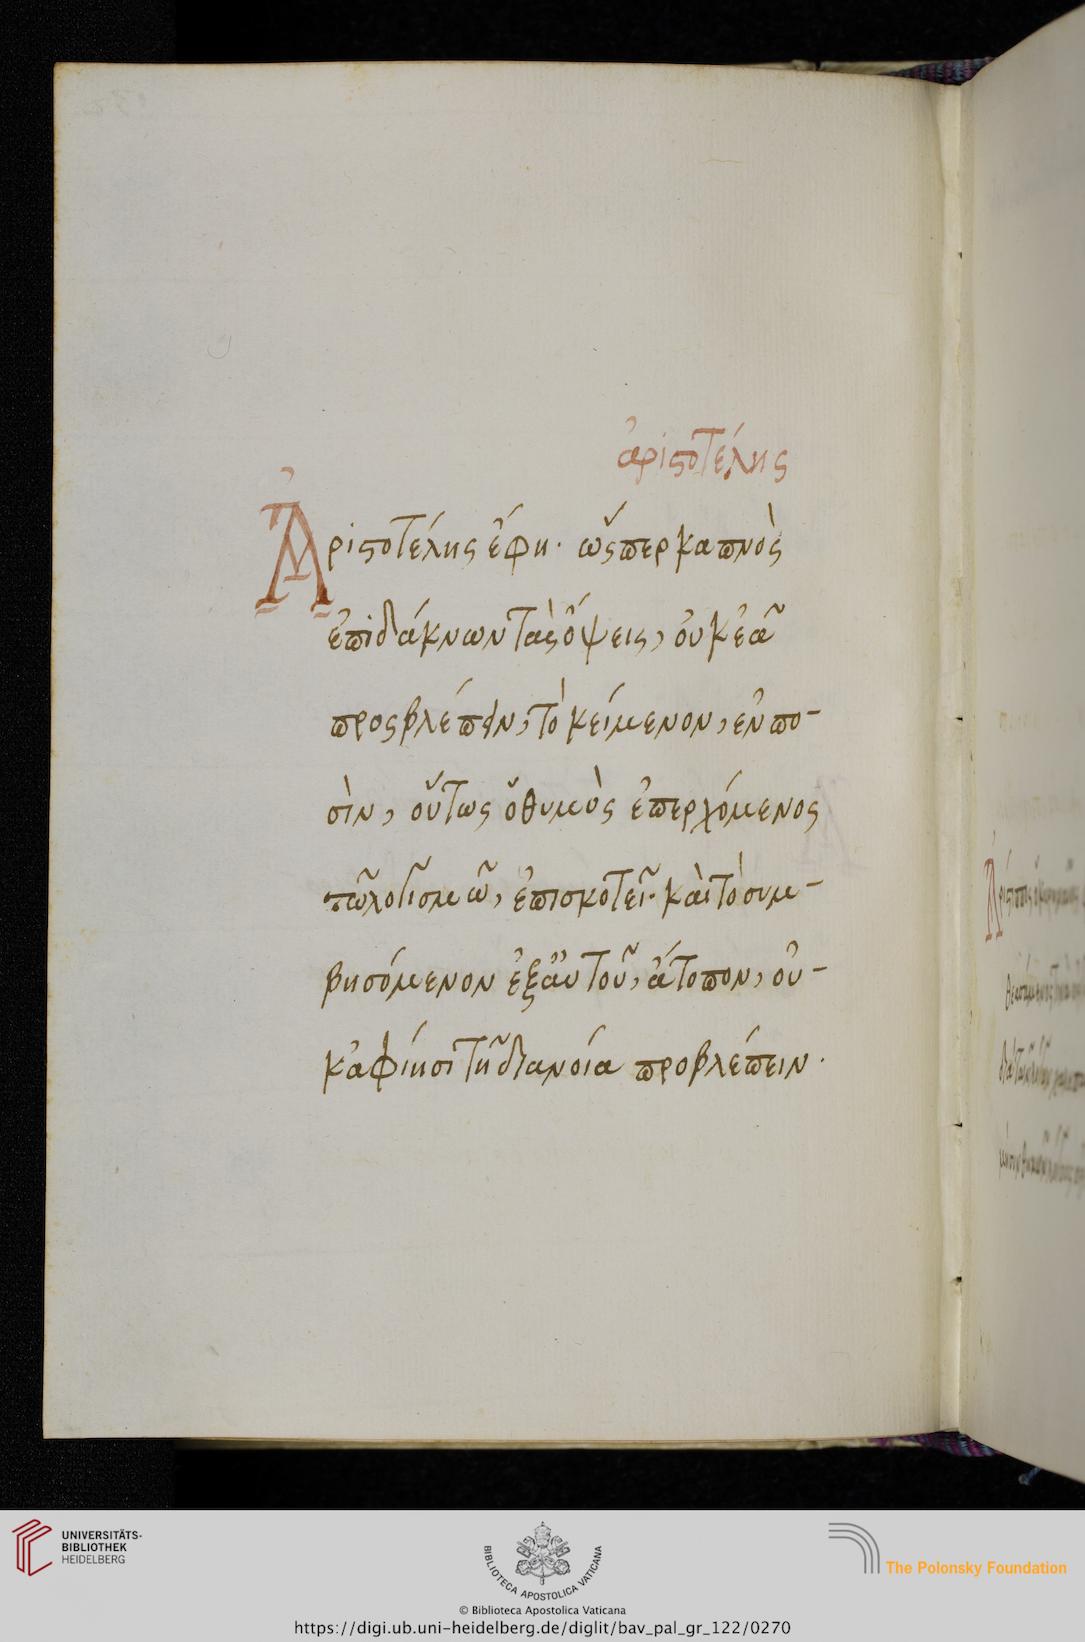 ἀριστοτέλης
Ἀριστοτέλης ἔφη· ὥσπερ καπνὸς
ἐπιδάκνων τὰς ὄψεις, οὐκ ἐᾶ
προσβλέπειν, τὸ κείμενον, ἐν πο-
σὶν, οὕτως ὁ θυμὸς ἐπερχόμενος
τῶ λογισμῶ, ἐπισκοτεῖ· καὶ τὸ συμ-
βησόμενον ἐξ αὐτοῦ, ἄτοπον, οὐ-
κ ἀφίησι τῆ διανοία προβλέπειν.
UNIVERSITÄTS-
BIBLIOTHEK
HEIDELBERG
BIBLIOTECA APOSTOLICA VATICANA
© Biblioteca Apostolica Vaticana
The Polonsky Foundation
https://digi.ub.uni-heidelberg.de/diglit/bav_pal_gr_122/0270